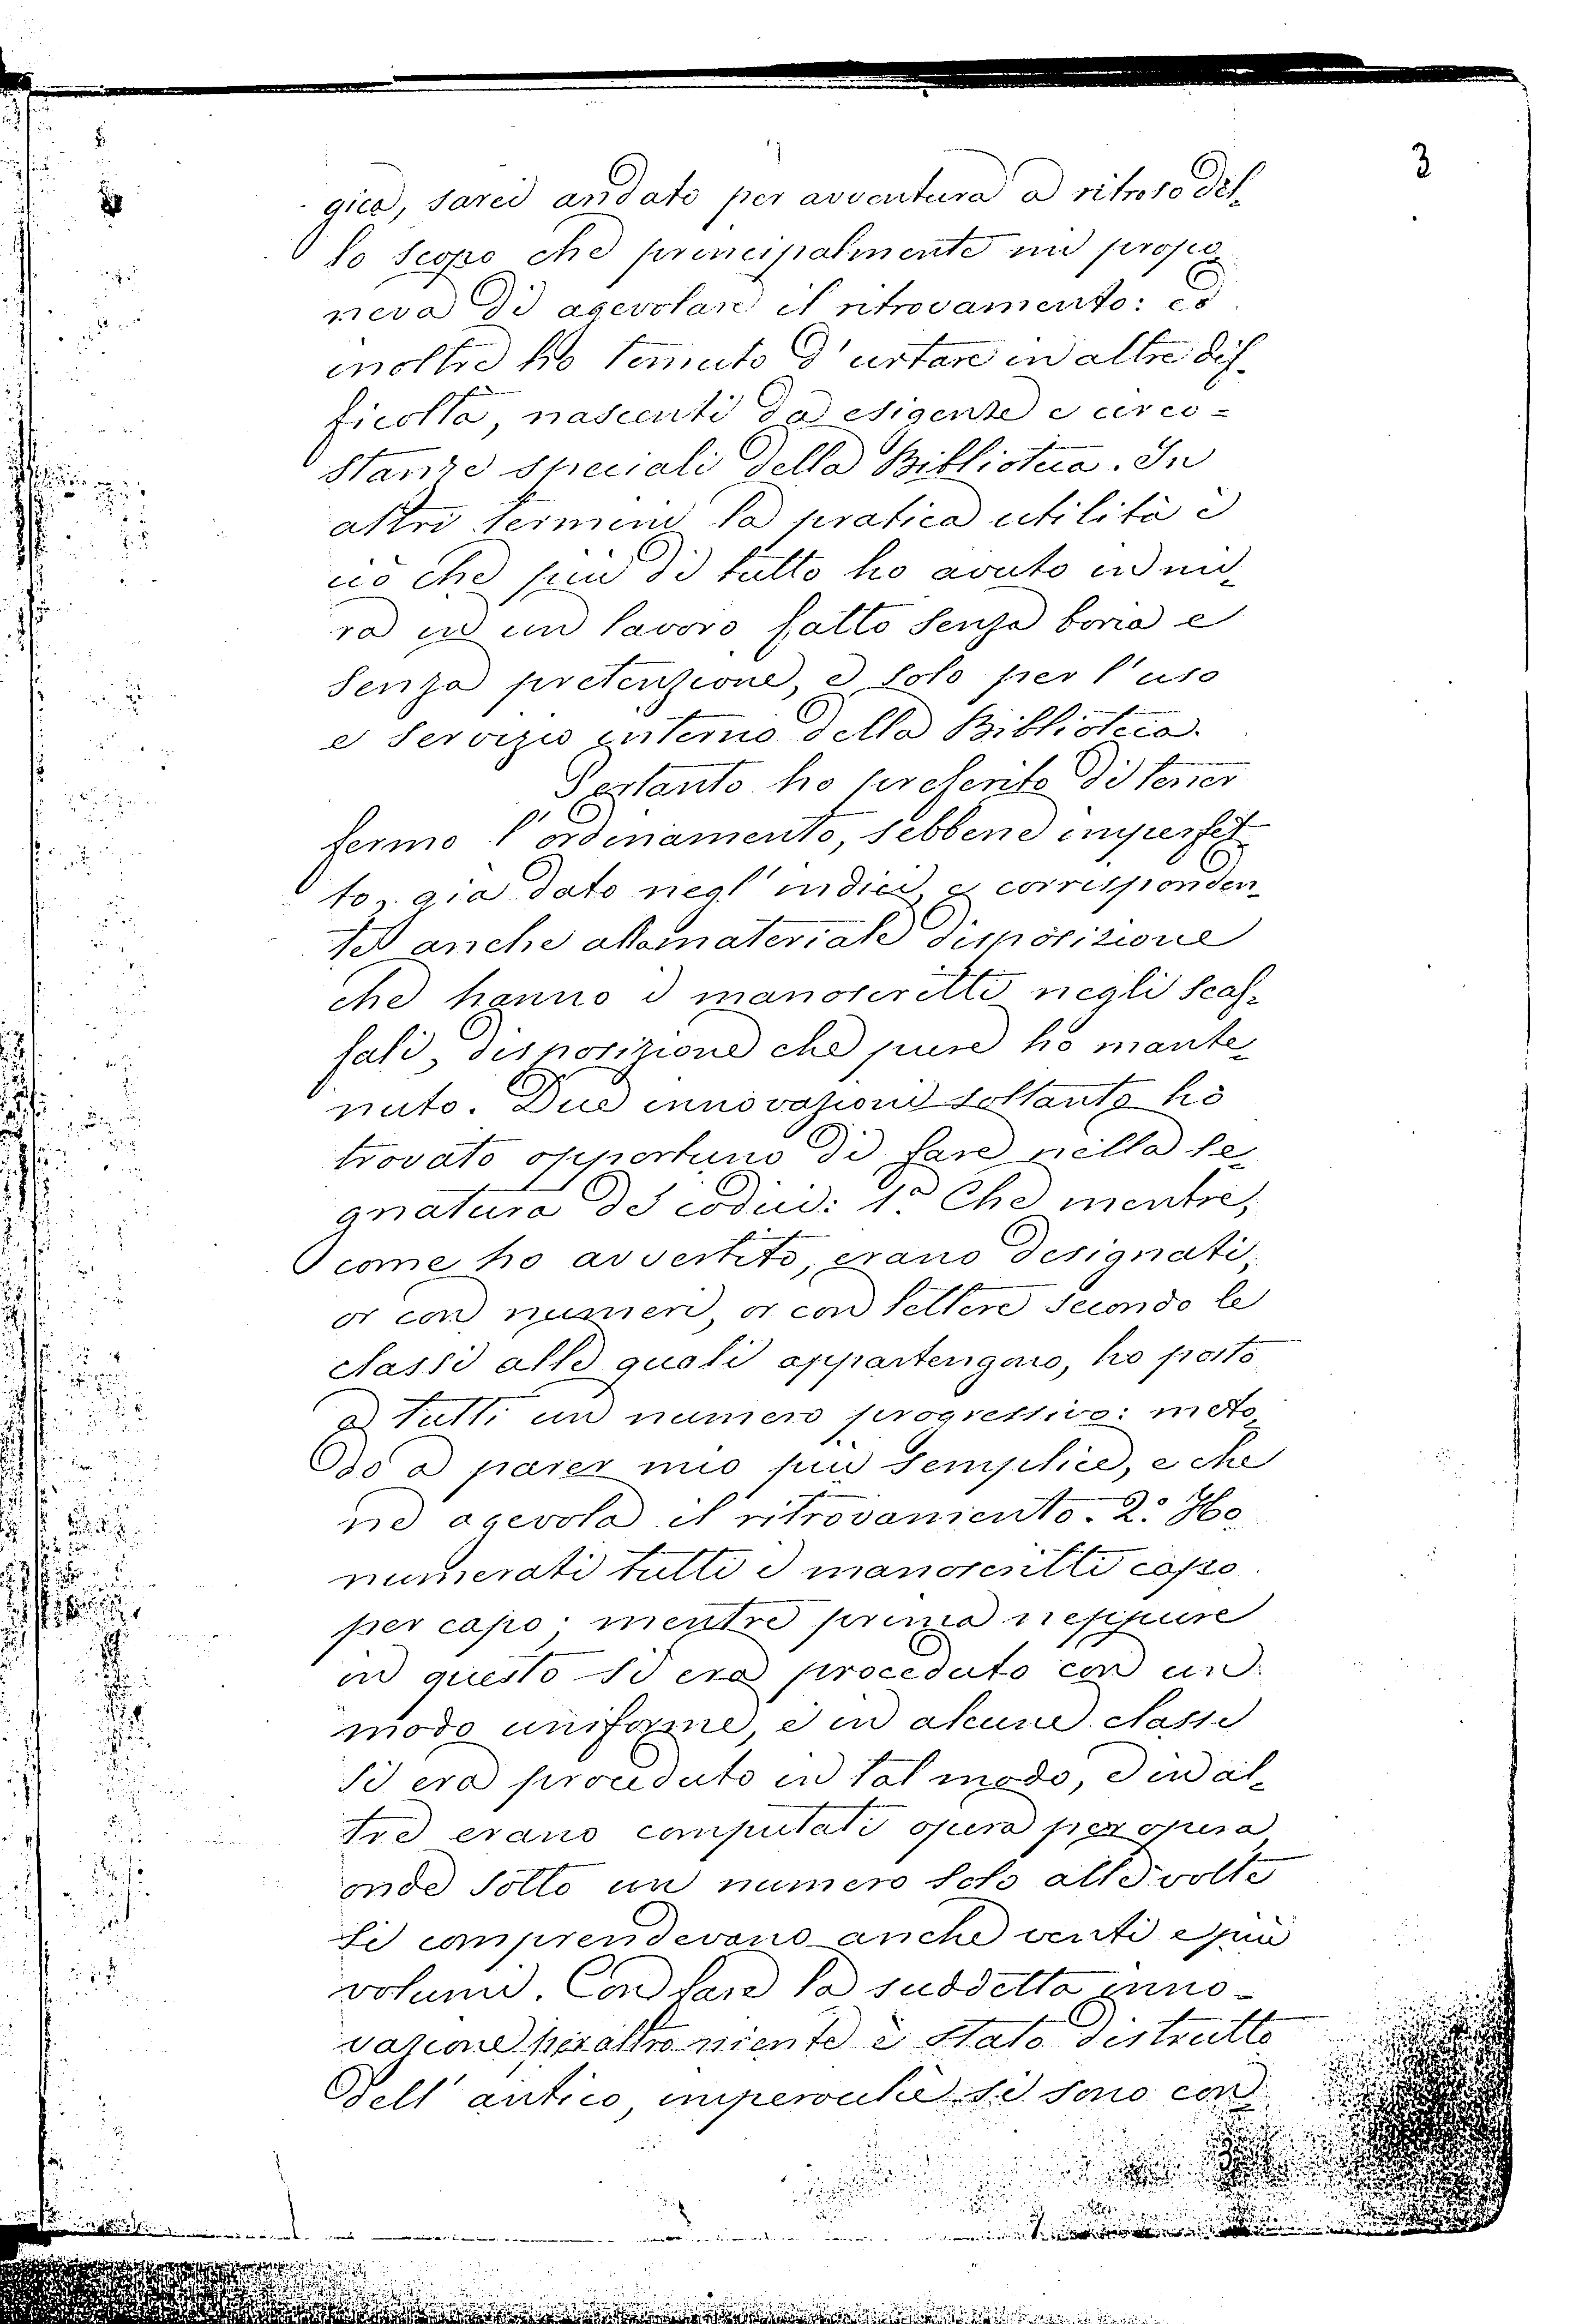 3
gica, sarei andato per avventura a ritroso del-
lo scopo che principalmente mi propo-
neva di agevolare il ritrovamento: ed
inoltre ho temuto d'urtare in altre dif-
ficoltà, nascenti da esigenze e circo=
stanze speciali della Biblioteca. In
altri termini la pratica utilità è
ciò che più di tutto ho avuto in mi-
ra in un lavoro fatto senza boria e
senza pretenzione, e solo per l'uso
e servizio interno della Biblioteca.
Pertanto ho preferito di tener
fermo l'ordinamento, sebbene imperfet-
to, già dato negl'indici, e corrisponden-
te anche alla materiale disposizione
che hanno i manoscritti negli scaf-
fali, disposizione che pure ho mante-
nuto. Due innovazioni soltanto ho
trovato opportuno di fare nella se-
gnatura de' codici: 1º Che mentre,
come ho avvertito, erano designati,
or con numeri, or con lettere secondo le
classi alle quali appartengono, ho posto
a tutti un numero progressivo: meto-
do a parer mio più semplice, e che
ne agevola il ritrovamento. 2º Ho
numerati tutti i manoscritti capo
per capo; mentre prima neppure
in questo si era proceduto con un
modo uniforme, e in alcune classi
si era proceduto in tal modo, e in al-
tre erano computati opera per opera
onde sotto un numero solo alle volte
si comprendevano anche venti e più
volumi. Con fare la suddetta inno-
vazione peraltro niente è stato distrutto
dell'antico, imperocchè si sono con-